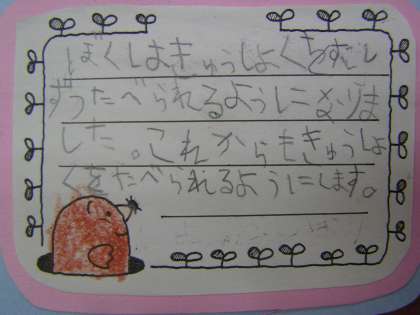 ぼくはきゅうしょくをすこし
ずつたべられるようになりま
した。これからもきゅうしょ
くをたべられるようにします。